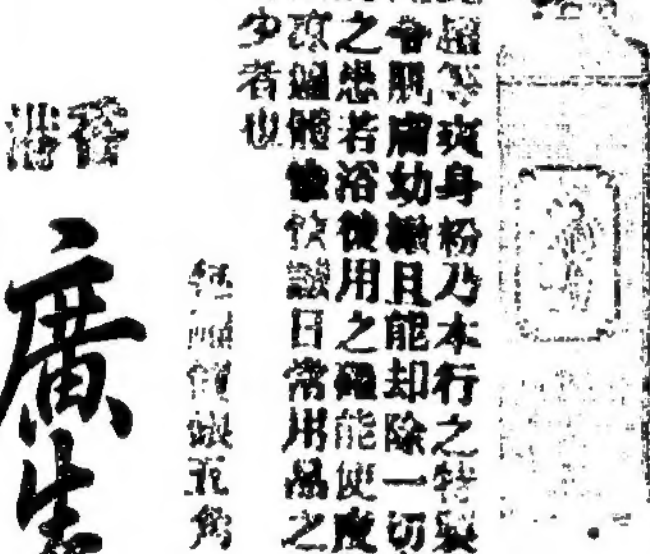 等爽身粉乃本行之特製
令肌膚幼嫩且能却除一切
之患若浴後用之確能使皮
涼遍體愉快誠日常用品之
少者也
每罐價銀五角
香港
廣生